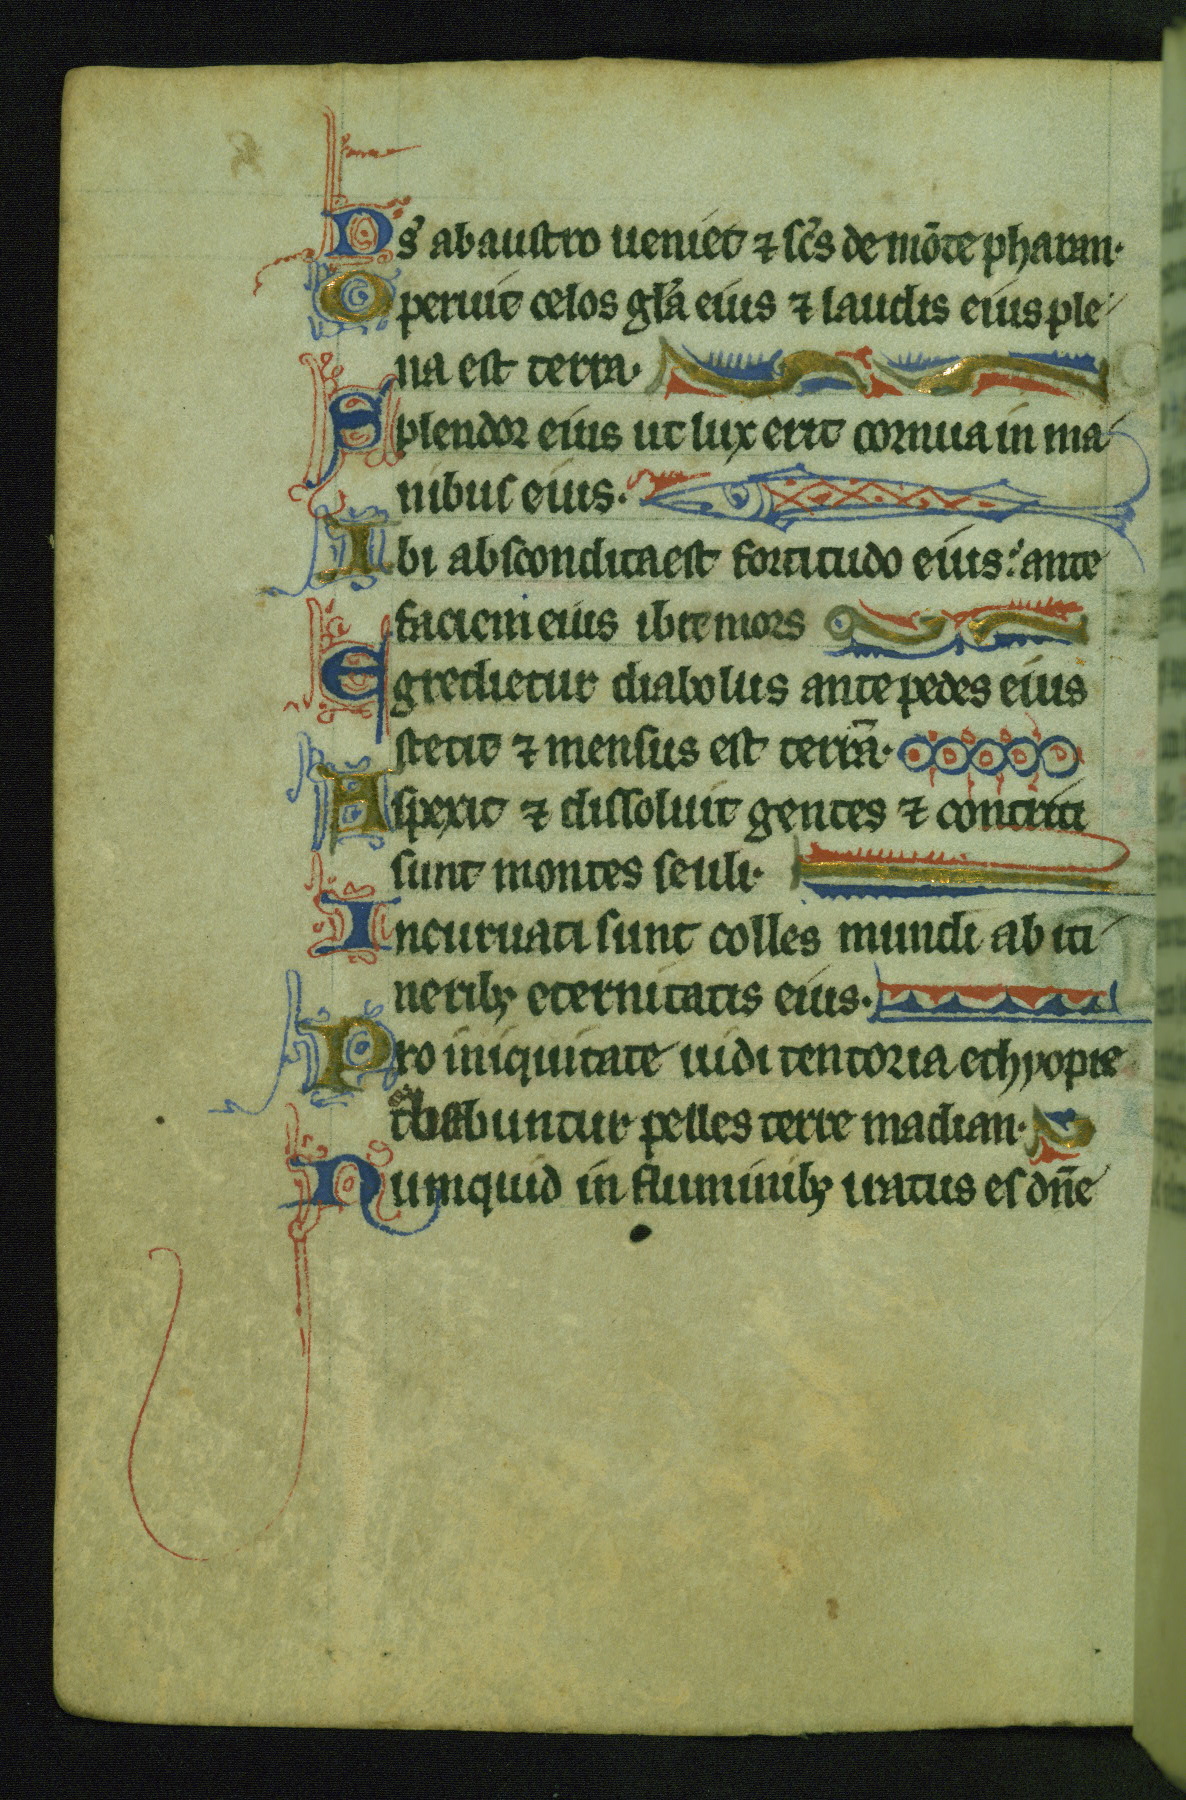 Ds̄ ab austro ueniet ⁊ sc̄s de mōte pharan·
Operuit celos gl̄a eius ⁊ laudis eius ple
na est terra·
Splendor eius ut lux erit cornua in ma
nibus eius·
Ibi abscondita est fortitudo eius: ante
faciem eius ibit mors
Egredietur diabolus ante pedes eius
stetit ⁊ mensus est terrā·
Aspexit ⁊ dissoluit gentes ⁊ contriti
sunt montes seculi·
Incuruati sunt colles mundi ab iti
neribꝫ eternitatis eius·
Pro iniquitate uidi tentoria ethyopie
buntur pelles terre madian·
Numquid in fluminibꝫ iratus es dn̄e